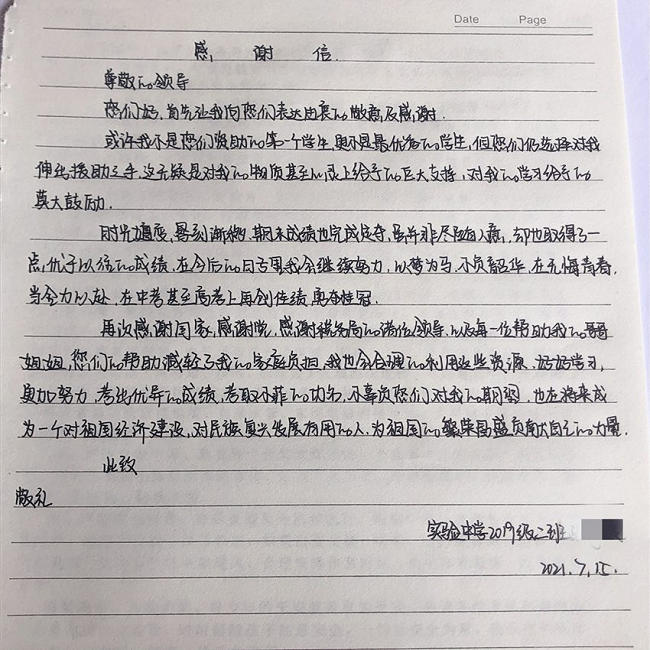 Date Page
感 谢 信.
尊敬的领导
您们好,首先让我向您们表达由衷的敬意及感谢.
或许我不是您们资助的第一个学生,更不是最优秀的学生,但您们仍选择对我
伸出援助之手,这无疑是对我的物质甚至以及上给予的巨大支持,对我的学习给予的
莫大鼓励.
时光遍度,晷刻渐移,期末成绩也完成定夺,虽并非尽随人意,却也取得了一
点,优于以往的成绩,在今后的日子里我会继续努力,以梦为马,不负韶华,在无悔青春,
当全力以赴,在中考甚至高考上再创佳绩,勇夺桂冠.
再次感谢国家,感谢党,感谢税务局的诸位领导,以及每一位帮助我的哥哥
姐姐,您们的帮助减轻了我的家庭负担,我也会合理的利用这些资源,好好学习,
更加努力,考出优异的成绩,考取不菲的功名,不辜负您们对我的期望,也在将来成
为一个对祖国经济建设,对民族复兴发展有用的人,为祖国的繁荣昌盛贡献自己的力量.
此致
敬礼
实验中学2019级二班
2021.7.15.